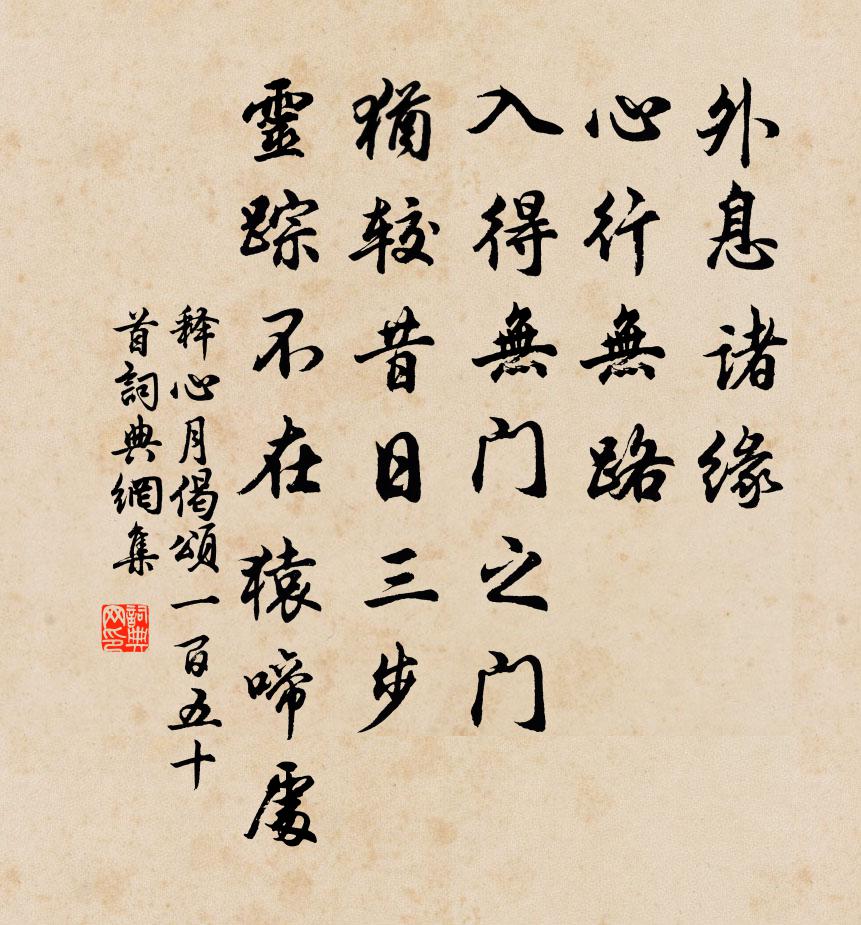 外息诸缘
心行無路
入得無门之门
猶较昔日三步
靈踪不在猿啼處
释心月偈頌一百五十
首詞典網集
詞典
网印